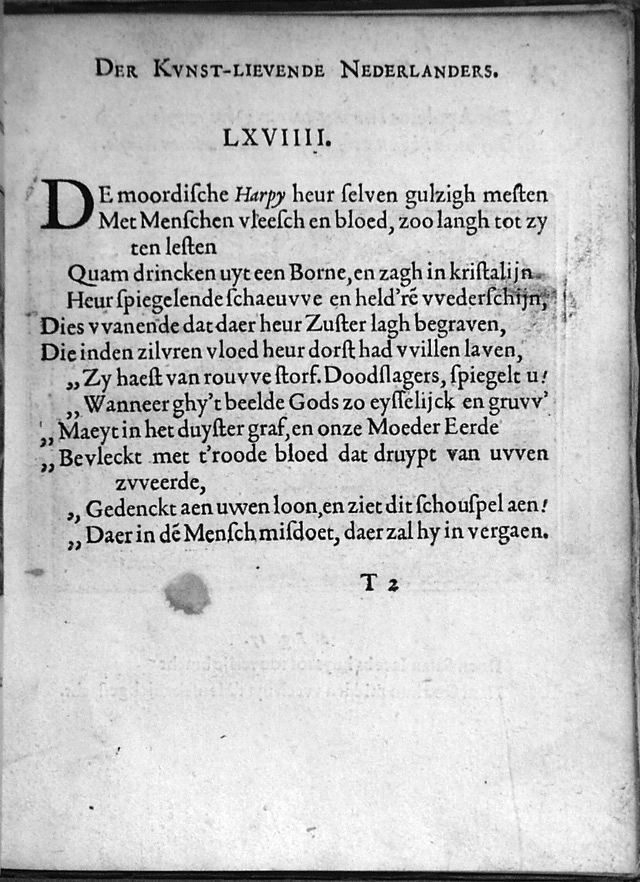 DER KVNST-LIEVENDE NEDERLANDERS.
LXVIIII.
DE moordiſche Harpy heur ſelven gulzigh meſten
Met Menſchen vleeſch en bloed, zoo langh tot zy
ten leſten
Quam drincken uyt een Borne, en zagh in kriſtalijn
Heur ſpiegelende ſchaeuvve en held'ré vvederſchijn,
Dies vvanende dat daer heur Zuſter lagh begraven,
Die inden zilvren vloed heur dorſt had vvillen laven,
„Zy haeſt van rouvve ſtorf. Doodſlagers, ſpiegelt u!
„Wanneer ghy't beelde Gods zo eyſſelijck en gruvv'
„Maeyt in het duyſter graf, en onze Moeder Eerde
„Bevleckt met t'roode bloed dat druypt van uvven
zvveerde,
„Gedenckt aen uwen loon, en ziet dit ſchouſpel aen!
„Daer in dé Menſch miſdoet, daer zal hy in vergaen.
T 2